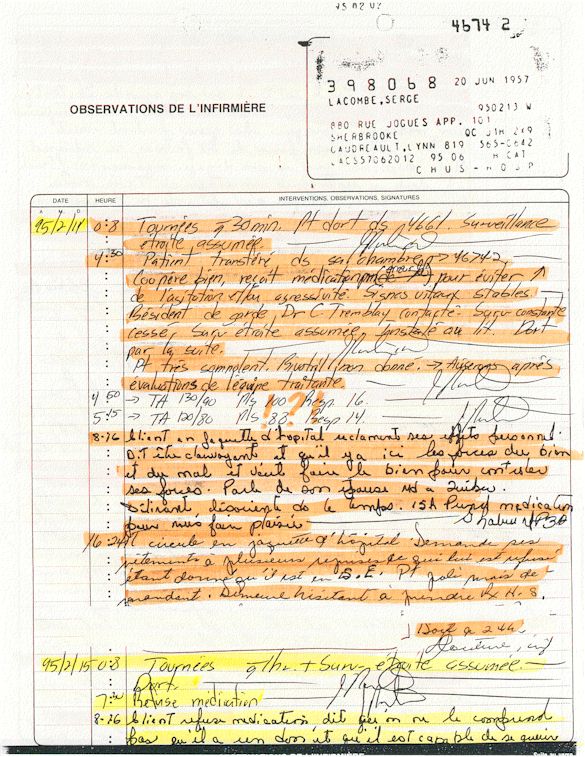 95 02 02
4674 2
398068 20 JUN 1957
LACOMBE,SERGE
950213 W
880 RUE JOGUES APP. 101
SHERBROOKE QC J1H 2X9
GAUDREAULT,LYNN 819 565-0642
LACS57062012 95 06 H CAT
CHUS-HOSP
OBSERVATIONS DE L'INFIRMIÈRE
DATE HEURE INTERVENTIONS, OBSERVATIONS, SIGNATURES
A M D
95/2/14 0:8 Tournées q 30 min. Pt dort ds 4661. Surveillance
étroite assumée.
4:30 Patient transféré ds sa chambre 4674 2.
Coopère bien, reçoit médication pour éviter ↑
de l'agitation et/ou agressivité. Signes vitaux stables.
Résident de garde, Dr C. Tremblay contacté. Surv constante
cessé, surv étroite assumée, au lit. Dort
par la suite.
Pt très somnolent. non donné. → Aviserons après
évaluations de l'équipe traitante.
4 50 → TA 130/90 Pls 100 Resp. 16.
!?!
5:15 → TA 120/80 Pls 88 Resp 14.
8-16 Client en jaquette d'hôpital réclament ses effets personnel
Dit être clairvoyant et qu'il y a ici les forces du bien
et du mal et veut faire le bien pour contrôler
ses forces. Parle de son épouse
Délirant, de le temps. 15h Prend médication
pour nous faire plaisir
16-24 Il circule en jaquette d'hôpital. Demande ses
vêtements à plusieurs reprises ce qui lui est refusé
étant donné qu'il est en S.E. Pt poli mais de-
mandant. Demeure hésitant à prendre Rx H.S.
Dort à 24h.
95/2/15 0:8 Tournées q 1hr. + Surv étroite assumée.
Dort.
7: Refuse médication
8-16 Client refuse médication dit qu'on ne le comprend
pas qu'il a un don et qu'il est capable de se guérir